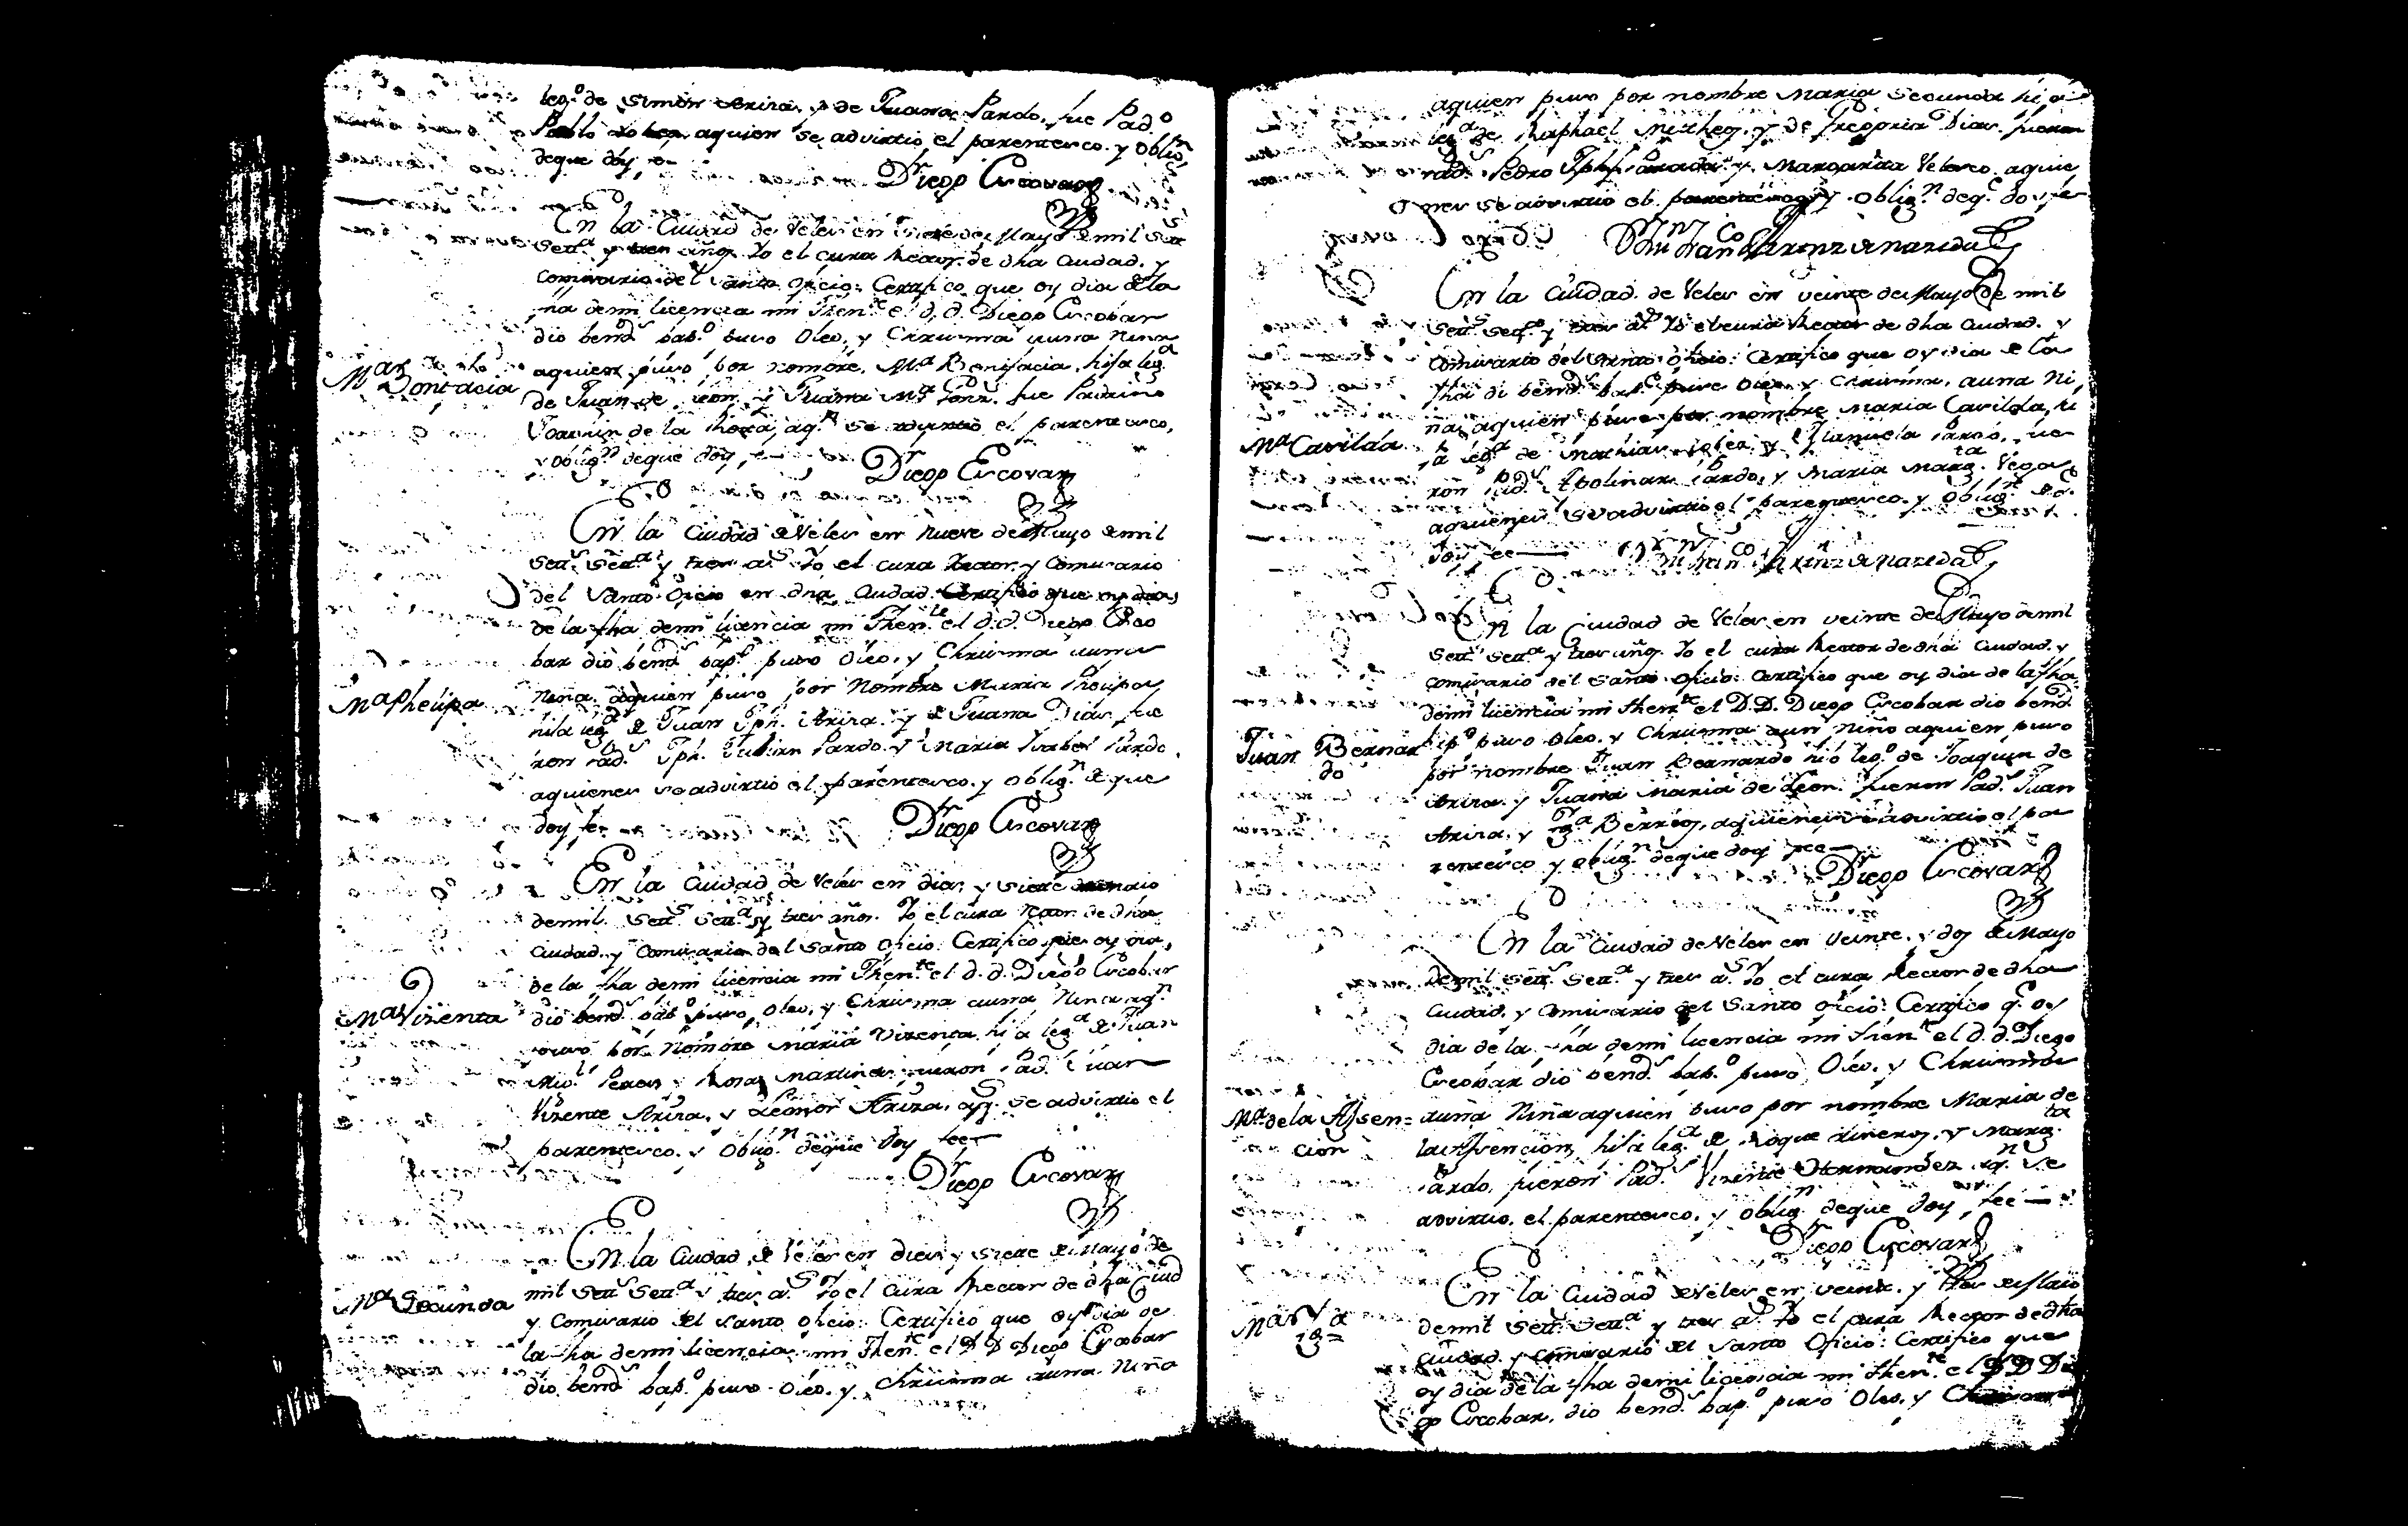 leg.º de Simon Ariza, y de Juana Pardo, fue Pad.º
Pablo aquien se advirtio el parentesco y oblig.n
de que doy fe
Diego Escovar
En la Ciudad de Veles en de Mayo de mil Sett.s
Sett.a y tres añoz. Yo el cura Rector de dha Ciudad, y
Comisario del Santo Oficio: Certifico que oy dia de la
fha de mi licencia mi Then.te el d. d. Diego Escobar
dio bend.s bap.º puso Oleo, y Chrisma auna Niña
aquien puso por nombre, M.a Bonifacia, hija leg.a
M.a Bonifacia
de Juan de Leon, y Juana M.a fue Padrino
Joaquin de la Rosa, aq.n se advirtio el parentesco,
y oblig.n de que doy fe
Diego Escovar
En la Ciudad de Veles en nueve de Mayo de mil
sett.s sett.a y tres a.s Yo el cura Rector y Comisario
del Santo Oficio en dha Ciudad Certifico que oy dia
de la fha de mi licencia mi Then.te el d. d. Diego Esco
bar dio bend.s bap.º puso Oleo, y Chrisma auna
M.a Phelipa
Niña, aquien puso por Nombre Maria Phelipa,
hija leg.a de Juan Jph. Ariza y de Juana Dias, fue
ron Pad.s Jph. Julian Pardo y Maria Isabel Pardo,
aquienes se advirtio el parentesco, y oblig.n de que
doy fe
Diego Escovar
En la Ciudad de Veles en dies, y siete de Maio
de mil Sett.s Sett.a y tres años. Yo el cura Rector de dha
Ciudad, y Comisario del Santo Oficio: Certifico que oy dia,
de la fha de mi licencia mi Then.te el d. d. Diego Escobar
M.a Visenta
dio bend.s bap.º puso Oleo, y Chrisma auna Niña aq.n
puso por Nombre Maria Visenta hija leg.a de Juan
Peres, y Rosa Martines, fueron Pad.s Juan
Visente Ariza, y Leonor Ariza, aq.s se advirtio el
parentesco, y oblig.n de que doy fee
Diego Escovar
En la Ciudad de Veles en dies y siete de Mayo de
M.a Secunda
mil Sett.s Sett.a y tres a.s Yo el Cura Rector de dha Ciud
y Comisario del Santo Oficio: Certifico que oy dia de
la fha de mi licencia mi Then.te el D D Diego Escobar
dio bend.s bap.º puso Oleo, y Chrisma auna Niña
aquien puso por nombre Maria Secunda hija
leg.a de Raphael y de Gregoria Dias, fueron
Pad.s Pedro Jph. y Margarita Velasco aquie
nes se advirtio el parentesco y oblig.n de q.e doy fe
En la Ciudad de Veles en veinte de Mayo de mil
sett.s sett.a y tres a.s Yo el cura Rector de dha Ciudad, y
Comisario del Santo Oficio: Certifico que oy dia de la
fha di bend.s bap.º puse Oleo, y Chrisma, auna Ni
ña, aquien puse por nombre Maria Casilda, hi
M.a Casilda
ja leg.a de Mathias y Manuela Pardo, fue
ron Pad.s Apolinar Pardo, y Maria Marg.ta Vega
aquienes se advirtio el parentesco, y oblig.n de q.
doy fee
En la Ciudad de Veles en veinte de Mayo de mil
Sett.s Sett.a y tres añoz. Yo el cura Rector de dha Ciudad, y
Comisario del Santo Oficio: Certifico que oy dia de la fha
de mi licencia mi then.te el D.D. Diego Escobar dio bend.s
bap.º puso Oleo, y Chrisma aun Niño aquien puso
Juan Bernar
do
por nombre Juan Bernardo hijo leg.º de Joaquin de
Ariza, y Juana Maria de Leon. fueron Pad.s Juan
Ariza, y aquienes se advirtio el pa
rentesco y oblig.n de que doy fee
Diego Escovar
En la Ciudad de Veles en veinte, y dos de Mayo
de mil Sett.s Sett.a y tres a.s Yo el cura Rector de dha
Ciudad, y Comisario del Santo Oficio: Certifico q.e oy
dia de la fha de mi licencia mi then.te el d. d. Diego
Escobar dio bend.s bap.º puso Oleo, y Chrisma
M.a de la Assen=
cion
auna Niña aquien puso por nombre Maria de
la Assencion, hija leg.a de Roque y Marg.ta
Pardo, fueron Pad.s Visente Hernandez aq.n se
advirtio, el parentesco, y oblig.n de que doy fee
Diego Escovar
En la Ciudad de Veles en veinte, y tres de Maio
de mil Sett.s Sett.a y tres a.s Yo el cura Rector de dha
Ciudad, y Comisario del Santo Oficio: Certifico que
oy dia de la fha de mi licencia mi then.te el D D Die
go Escobar, dio bend.s bap.º puso Oleo, y Chrisma